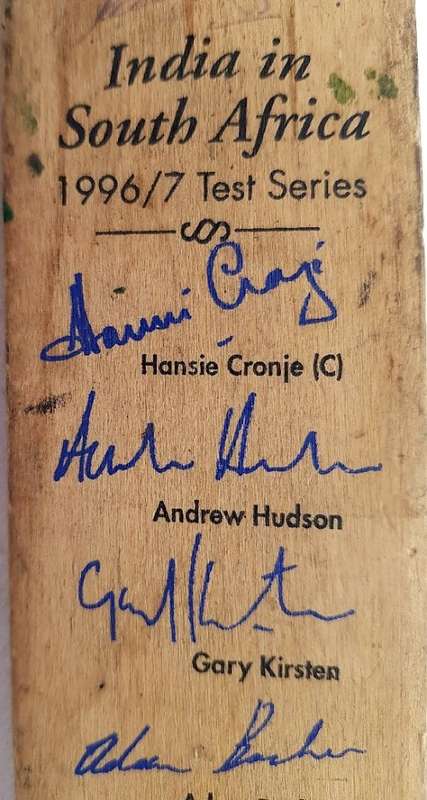 India in
South Africa
1996/7 Test Series
Hansie Cronje
Hansie Cronje (C)
Andrew Hudson
Andrew Hudson
Gary Kirsten
Gary Kirsten
Adam Bacher